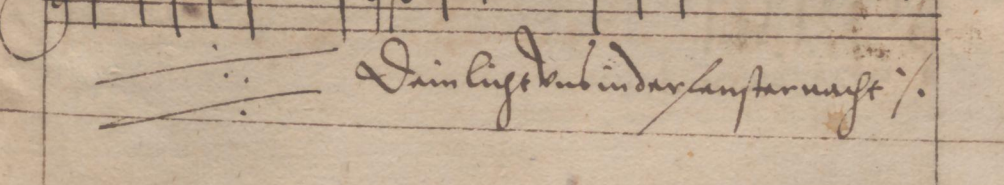 Dein licht vns in der fenster nacht ./.